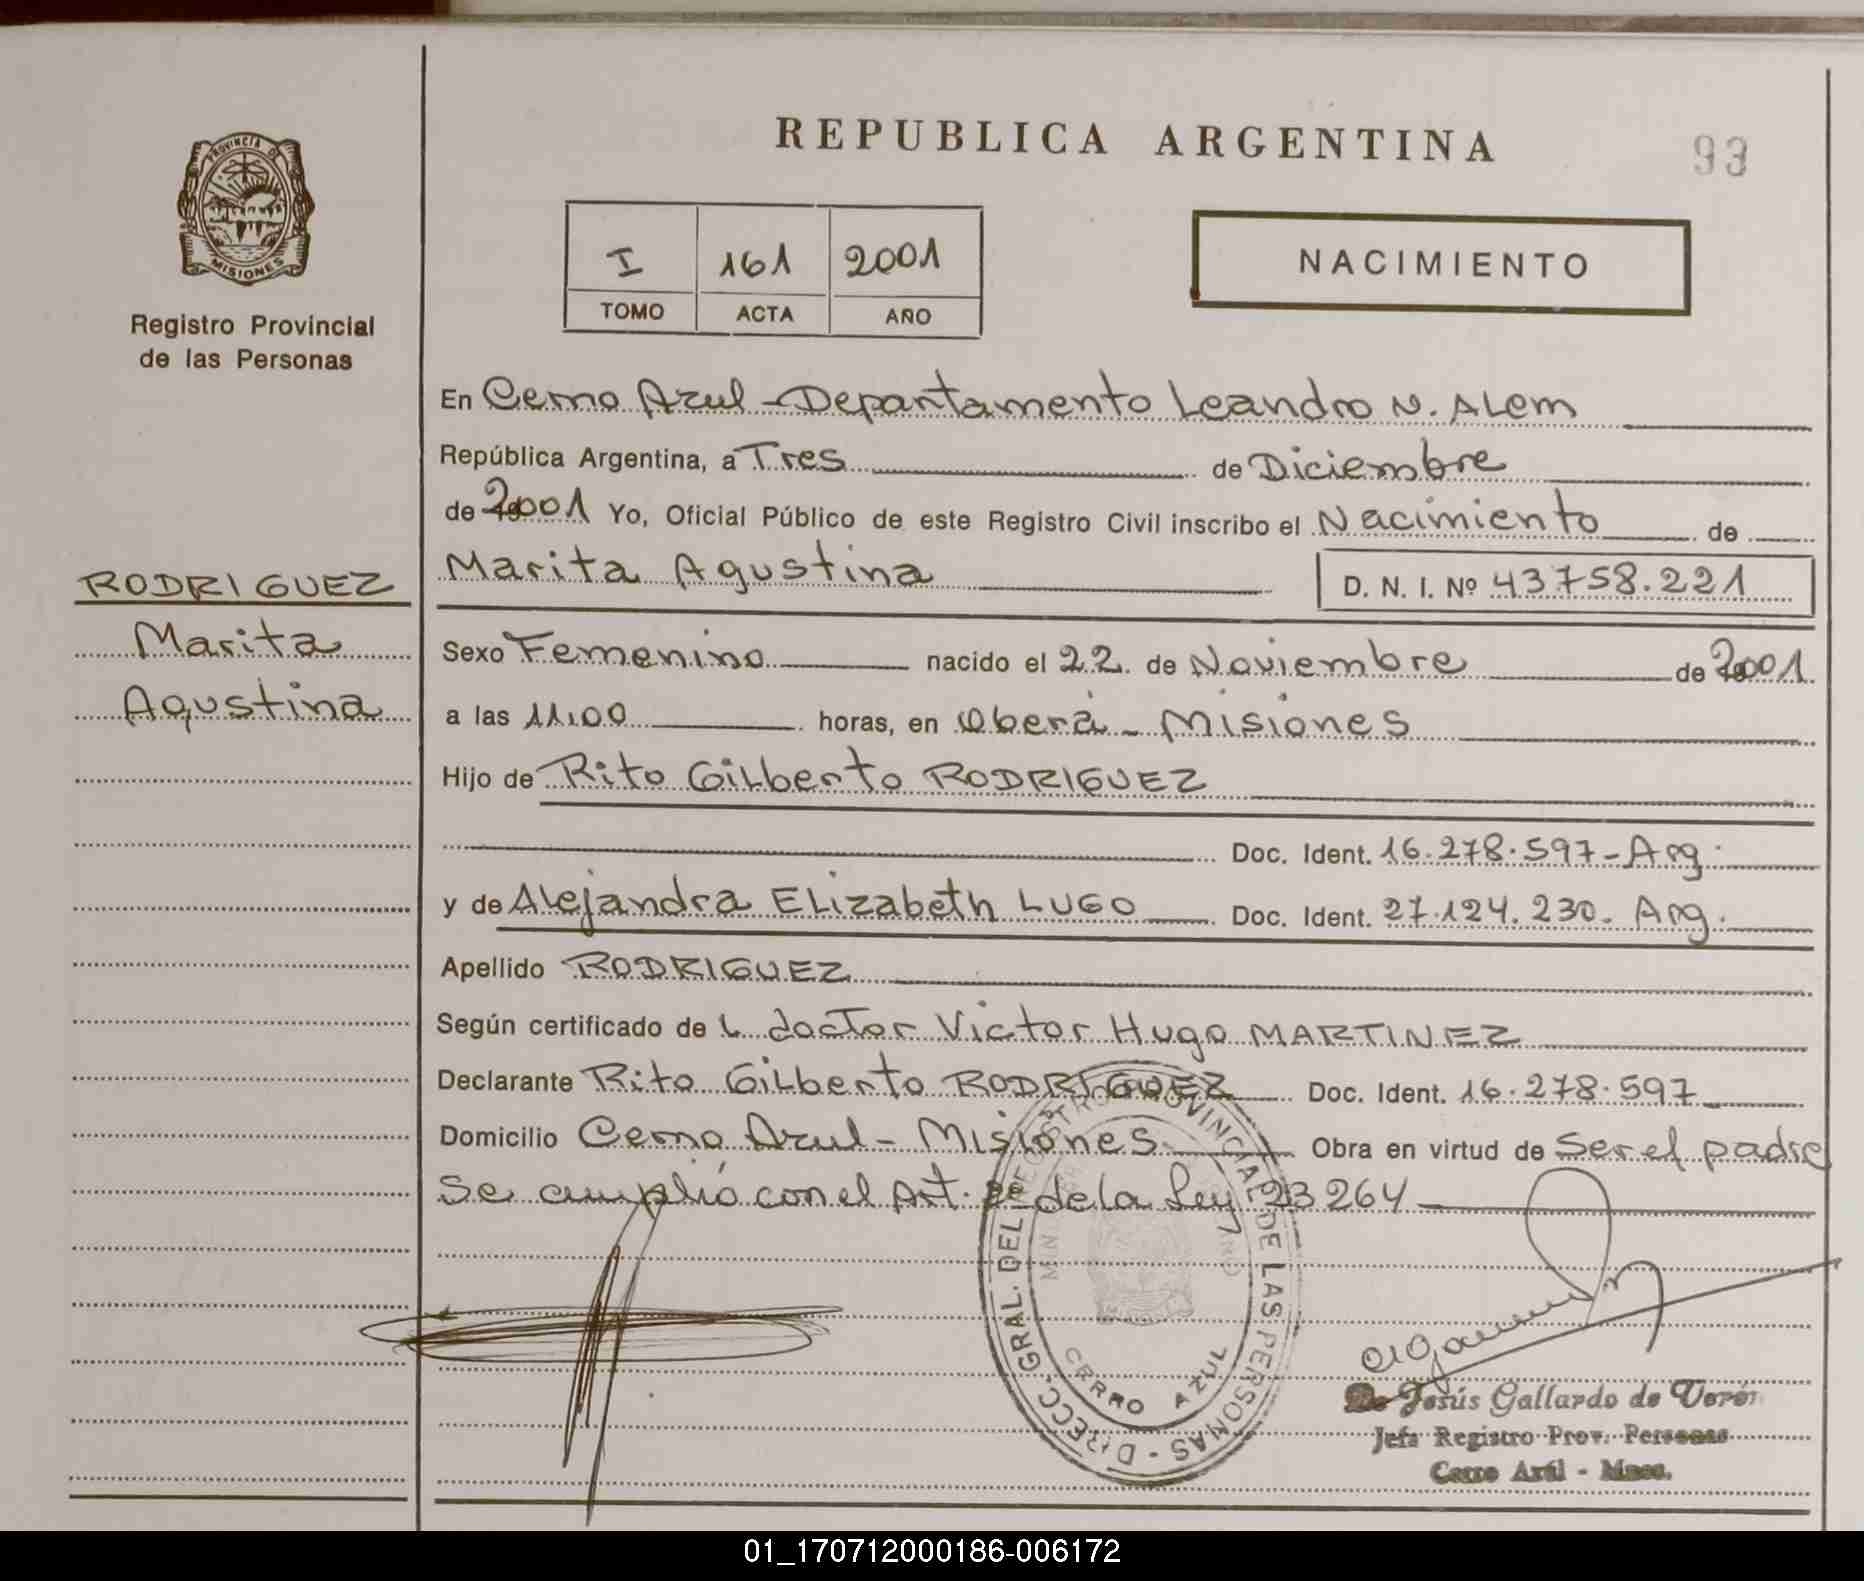 REPUBLICA ARGENTINA
93
PROVINCIA DE
MISIONES
Registro Provincial
de las Personas
I 161 2001
TOMO ACTA AÑO
NACIMIENTO
En Cerro Azul - Departamento Leandro N. Alem
República Argentina, a Tres de Diciembre
de 2001 Yo, Oficial Público de este Registro Civil inscribo el Nacimiento de
RODRIGUEZ
Marita
Agustina
Marita Agustina D. N. I. Nº 43758.221
Sexo Femenino nacido el 22 de Noviembre de 2001
a las 11.00 horas, en Oberá - Misiones
Hijo de Rito Gilberto RODRIGUEZ
Doc. Ident. 16.278.597 - Arg.
y de Alejandra Elizabeth LUGO Doc. Ident. 27.124.230. Arg.
Apellido RODRIGUEZ
Según certificado de L doctor Victor Hugo MARTINEZ
Declarante Rito Gilberto RODRIGUEZ Doc. Ident. 16.278.597
Domicilio Cerro Azul - Misiones Obra en virtud de Ser el padre
Se cumplió con el Art. 2º de la Ley 23264
DIRECC. GRAL. DEL REGISTRO PROVINCIAL DE LAS PERSONAS
CERRO AZUL
De Jesús Gallardo de Verón
Jefa Registro Prov. Personas
Cerro Azúl - Mnes.
01_170712000186-006172